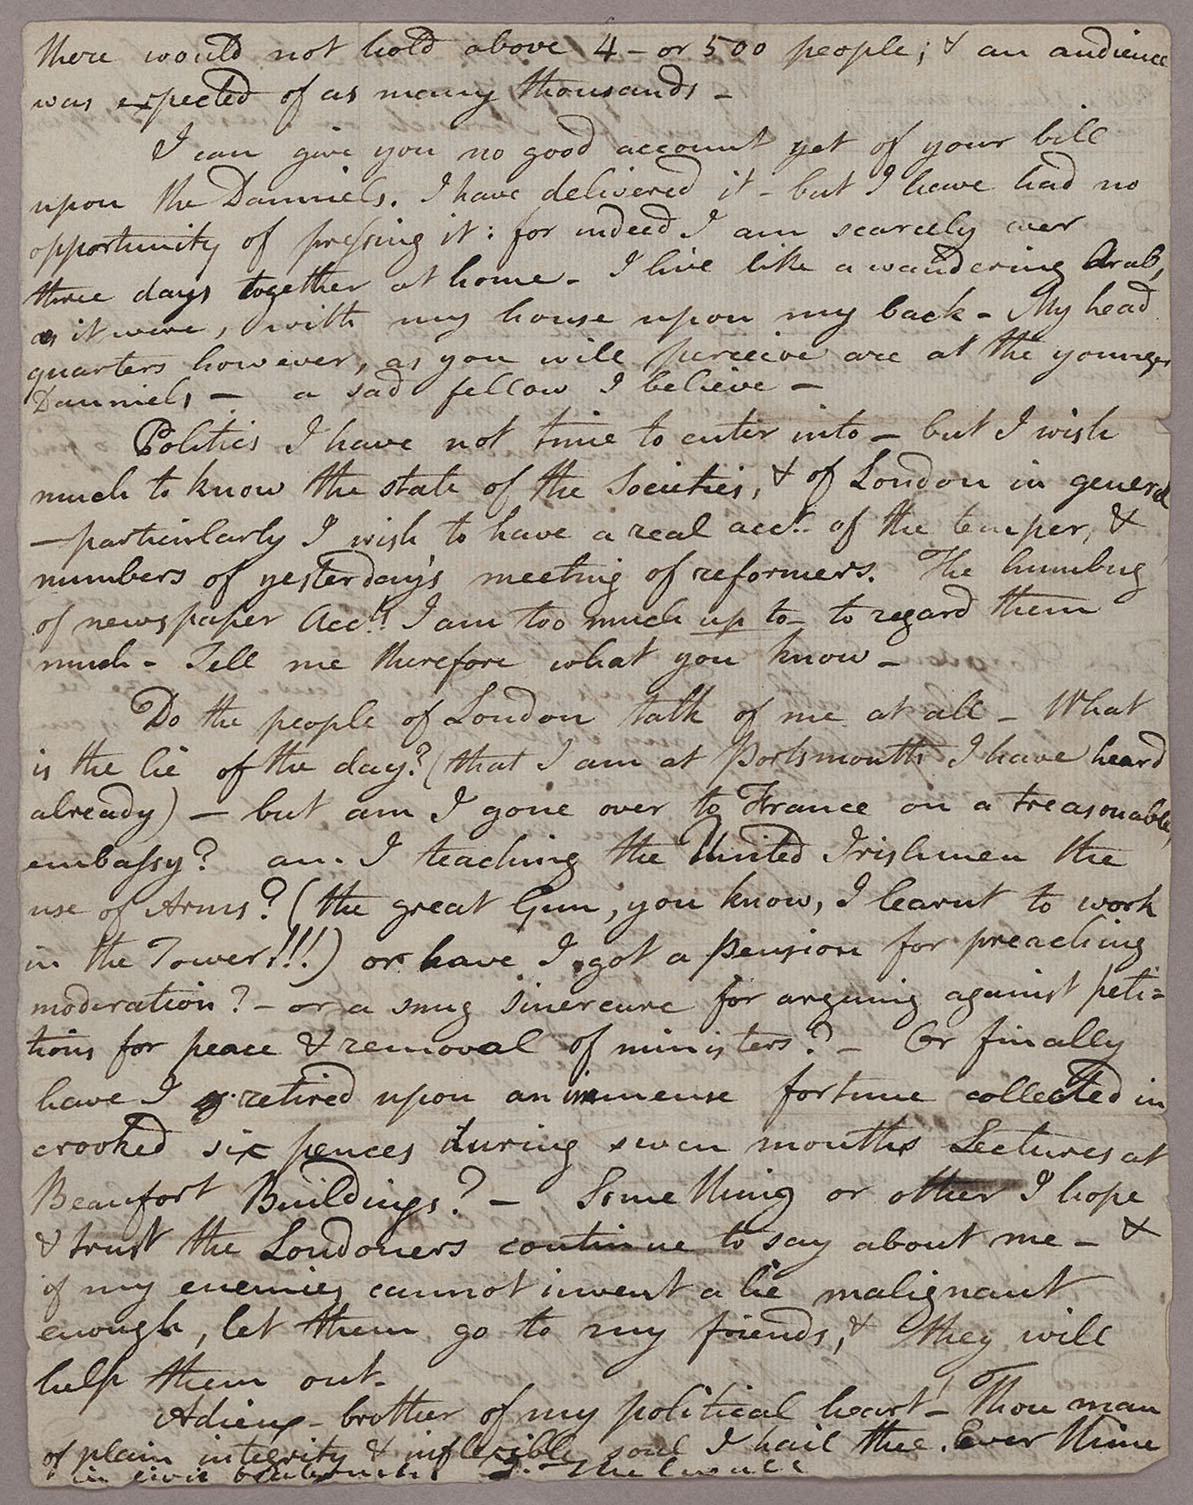 there would not hold above 4 - or 500 people; & an audience
was expected of as many thousands -
I can give you no good account yet of your bill
upon the Danniels. I have delivered it - but I have had no
opportunity of pressing it: for indeed I am scarcely ever
three days together at home - I live like a wandering Arab,
as it were, with my house upon my back - My head
quarters however, as you will perceive are at the younger
Danniels - a sad fellow I believe -
Politics I have not time to enter into - but I wish
much to know the state of the Societies, & of London in general
- particularly I wish to have a real acct. of the temper, &
numbers of yesterday's meeting of reformers. The humbug
of newspaper Acct.s I am too much up to - to regard them
much - Tell me therefore what you know -
Do the people of London talk of me at all - What
is the lie of the day? (that I am at Portsmouth I have heard
already) - but am I gone over to France on a treasonable
embassy? am I teaching the United Irishmen the
use of Arms? (the great Gun, you know, I learnt to work
in the Tower!!!) or have I got a pension for preaching
moderation? - or a snug sinercure for arguing against peti=
tions for peace & removal of ministers? - Or finally
have I retired upon an immense fortune collected in
crooked six pences during seven months Lectures at
Beaufort Buildings? - Some thing or other I hope
& trust the Londoners continue to say about me - &
if my enemies cannot invent a lie malignant
enough, let them go to my friends, & they will
help them out -
Adieu - brother of my political heart! - Thou man
of plain integrity & inflexible soul I hail thee. Ever thine
in civic J. Thelwall